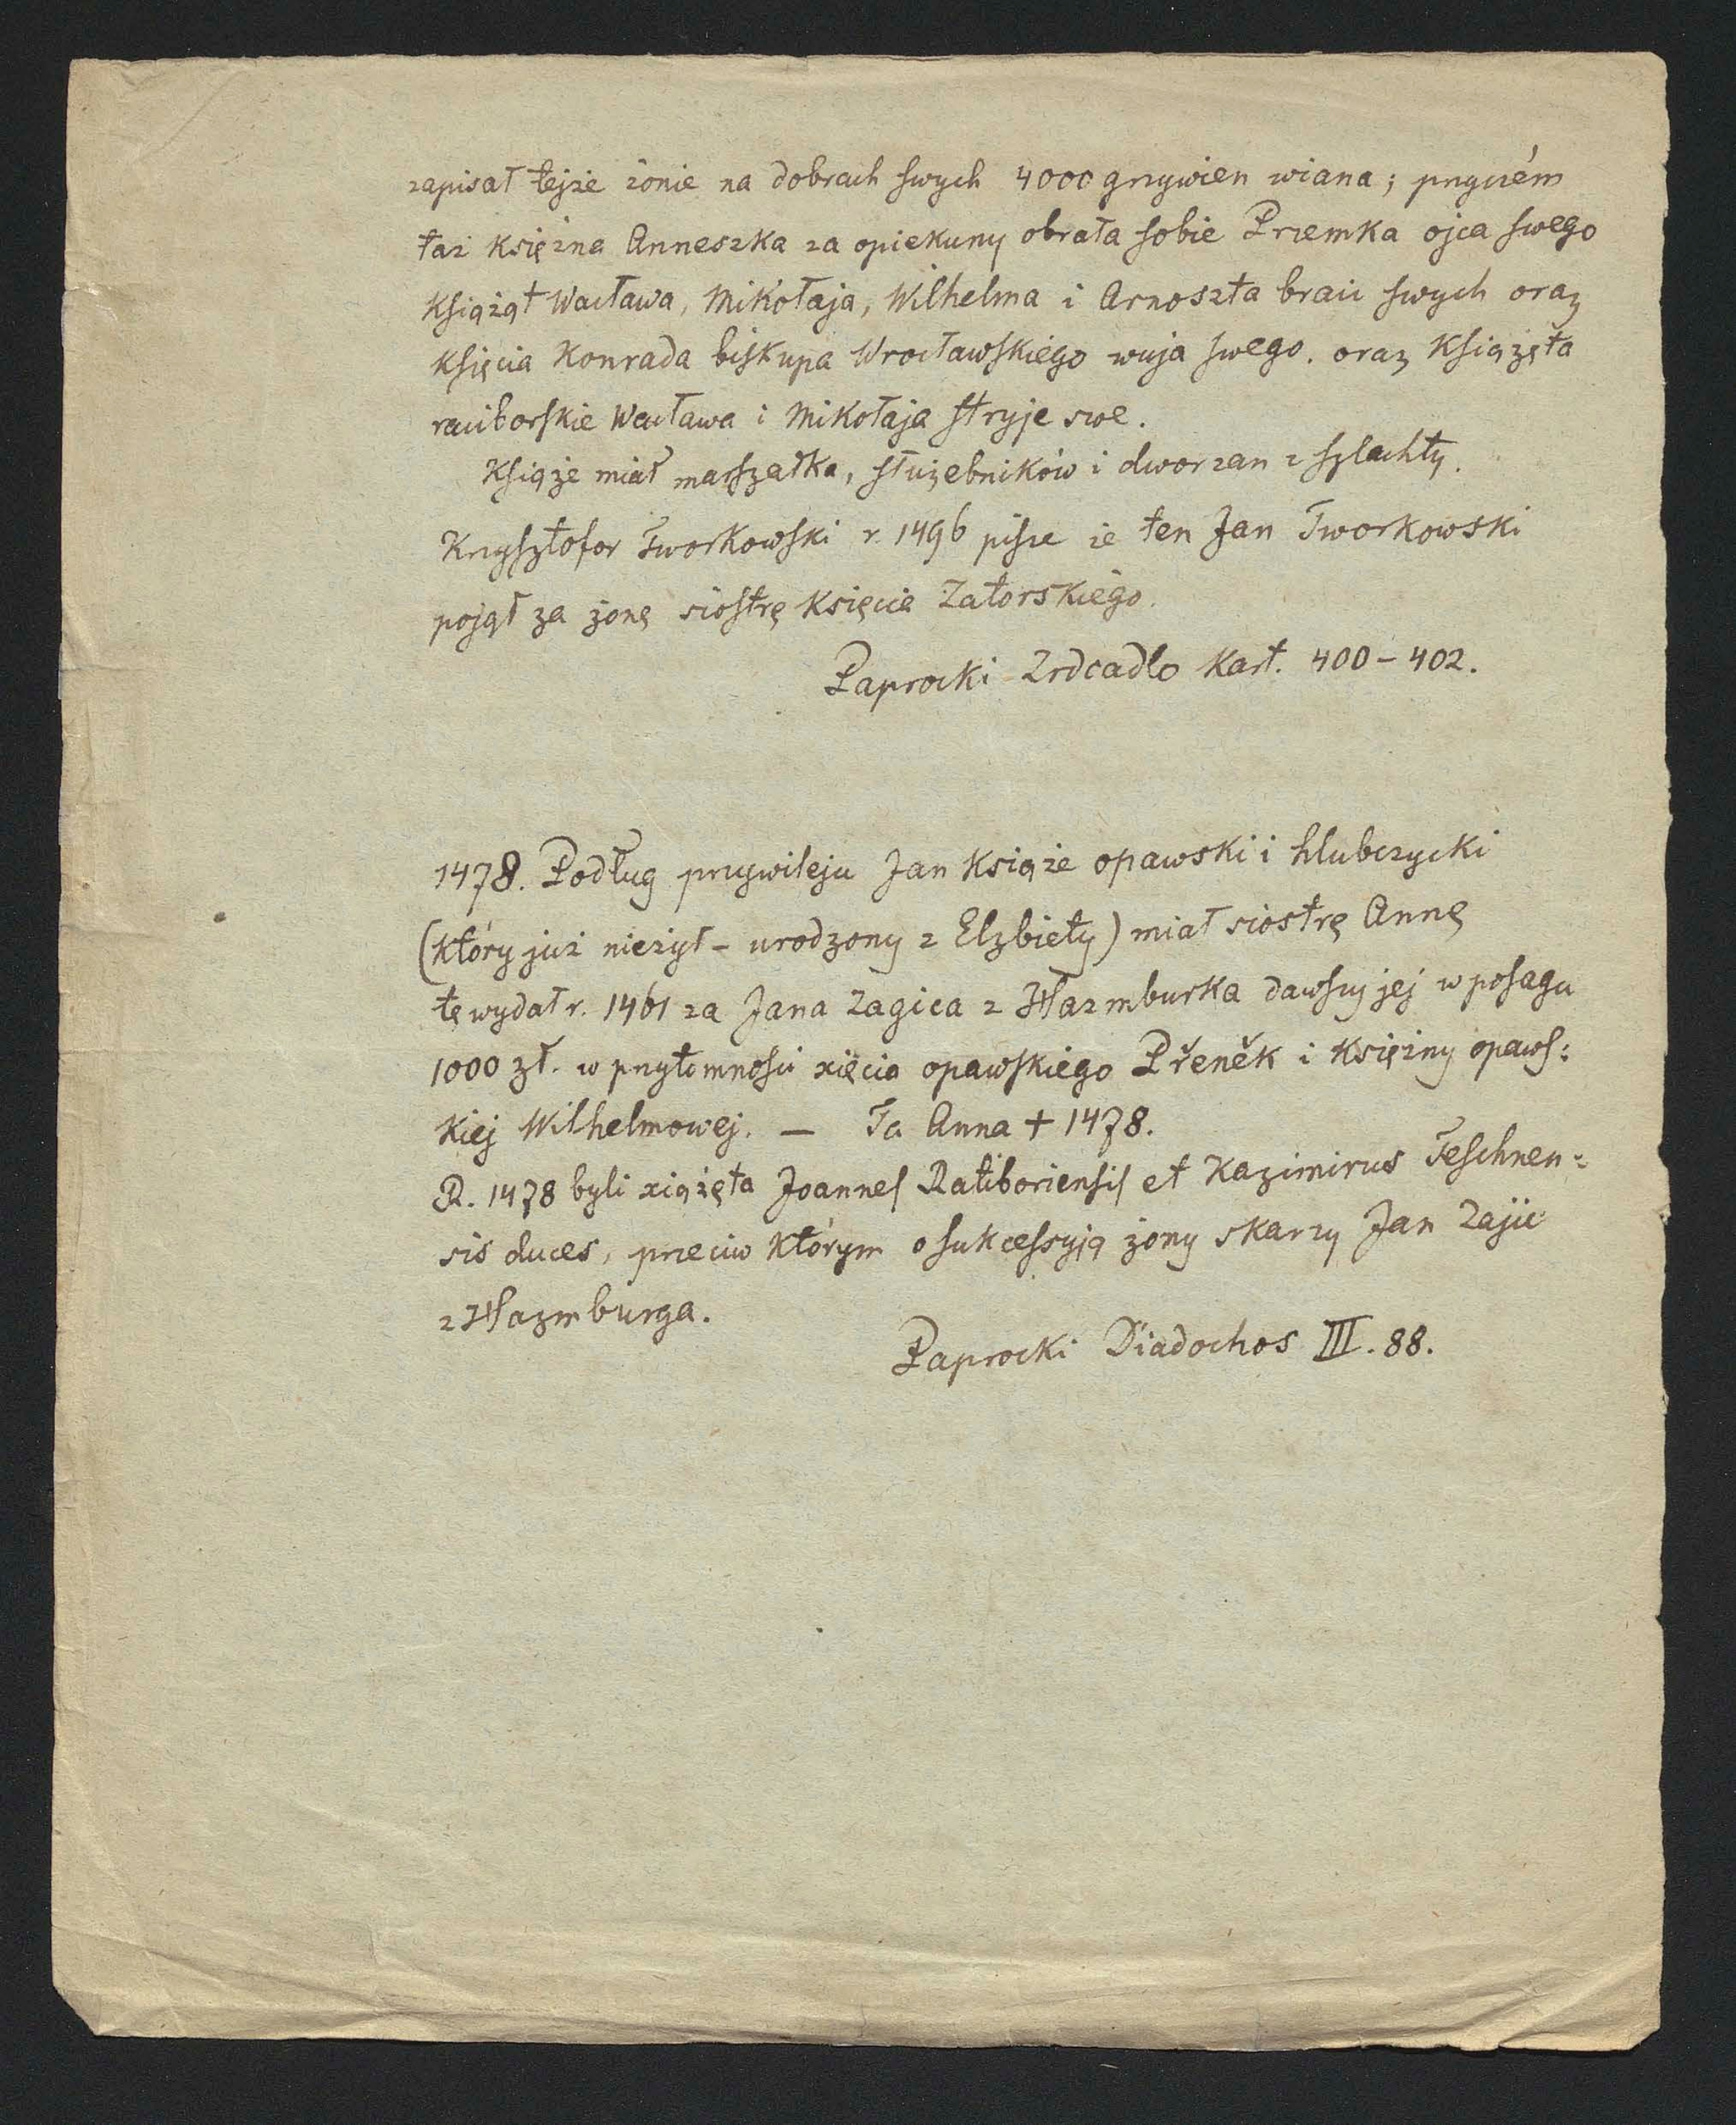 zapisał tejże żonie na dobrach swych 4000 grzywien wiana; przyczém
taż księżna Anneszka za opiekuny obrała sobie Przemka ojca swego
książąt Wacława, Mikołaja, Wilhelma i Arnoszta braci swych oraz
księcia Konrada biskupa Wrocławskiégo wuja swego. oraz książęta
raciborskie Wacława i Mikołaja stryje swe.
Książe miał marszałka, służebników i dworzan z szlachty.
Krzysztofor Tworkowski r. 1496 pisze że ten Jan Tworkowski
pojął za żonę siostrę księcia Zatorskiégo.
Paprocki Zrdcadlo Kart. 400–402.
1478. Podług przywileju Jan książe opawski i hlubczycki
(który już nieżył – urodzony z Elzbiety) miał siostrę Annę
tę wydał r. 1461 za Jana Zagica z Hazmburka dawszy jej w posagu
1000 zł. w przytomności xięcia opawskiego Přeněk i księżny opaws:
kiej Wilhelmowej. — Ta Anna + 1478.
R. 1478 byli xiążęta Joannes Ratiboriensis et Kazimirus Teschnen:
sis duces, przeciw którym o sukcessyją żony skarzy Jan Zajic
z Hazmburga.
Paprocki Diadochos III. 88.